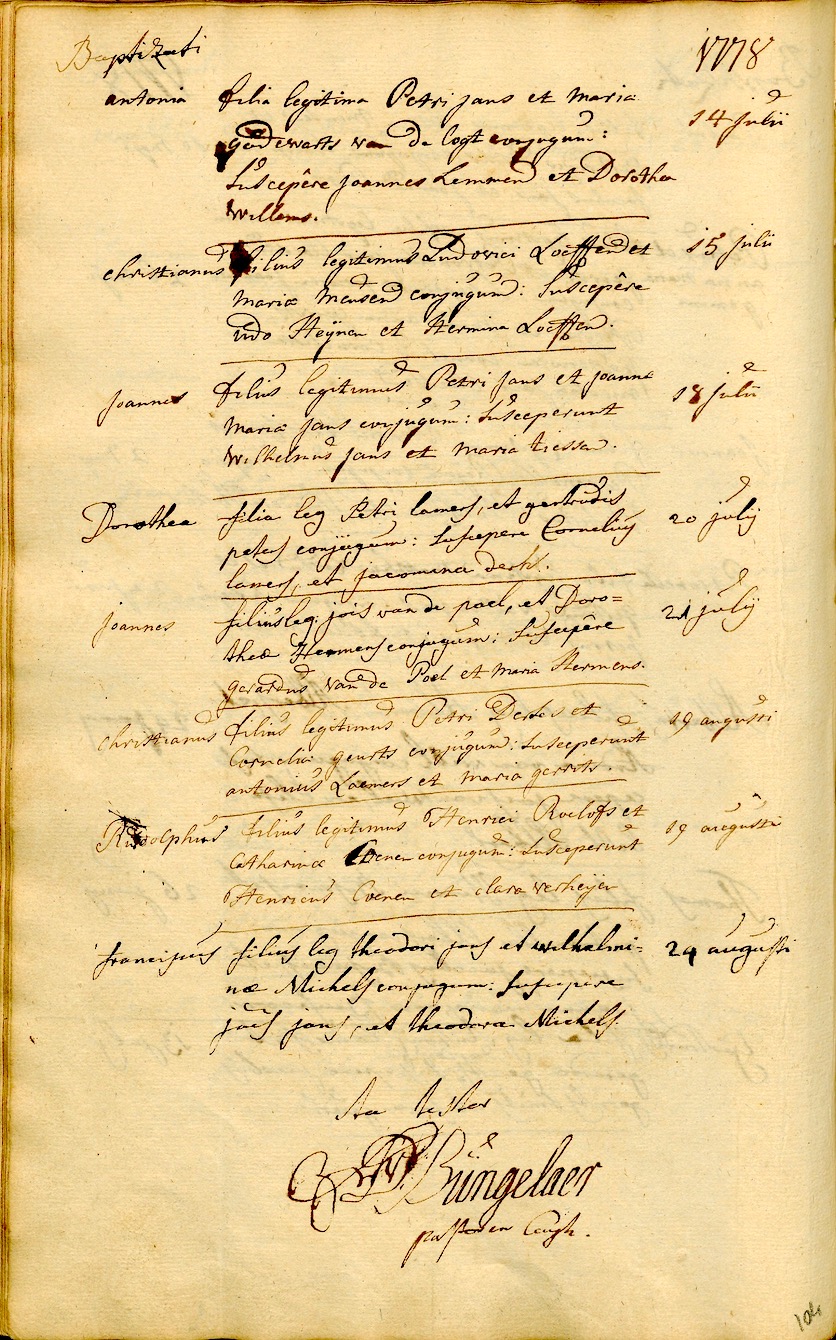 Baptizati 1778
antonia filia legitima Petri jans et maria
godewarts van de logt conjugum: 14 julii
Suscepêre joannes Lemmen et Dorothea
Willems.
christianus filius legitimus Ludovici Loeffen et 15 julii
mariæ mensen conjugum: Suscepêre
udo Heijnen et Hermina Loeffen.
joannes filius legitimus Petri jans et joanna 18 julii
maria jans conjugum: Susceperunt
Wilhelmus jans et maria tiessen.
Dorothea filia leg Petri lamers, et gertrudis 20 julij
peters conjugum: Suscepere Cornelius
lamers, et jacomina derks.
joannes filius leg: jois van de poel, et Doro= 21 julij
theæ Hermens conjugum: Suscepêre
gerardus van de Poel et maria Hermens.
christianus filius legitimus Petri Derks et 19 augusti
Cornelia geurts conjugum: Susceperunt
antonius Laemers et maria gerrits.
Rudolphus filius legitimus Henrici Roelofs et 19 augusti
Catharinæ Coenen conjugum: Susceperunt
Henricus Coenen et clara verheijen
franciscus filius leg theodori jans et wilhelmi= 24 augusti
næ Michels conjugum: Suscepere
joês jans, et theodora Michels.
Ita testor
Büngelaer
pastor in Cuijk.
104